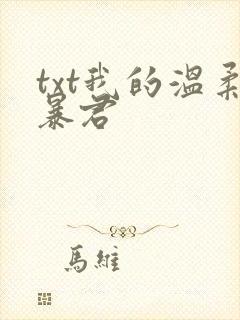 txt我的溫柔
暴君
馬維